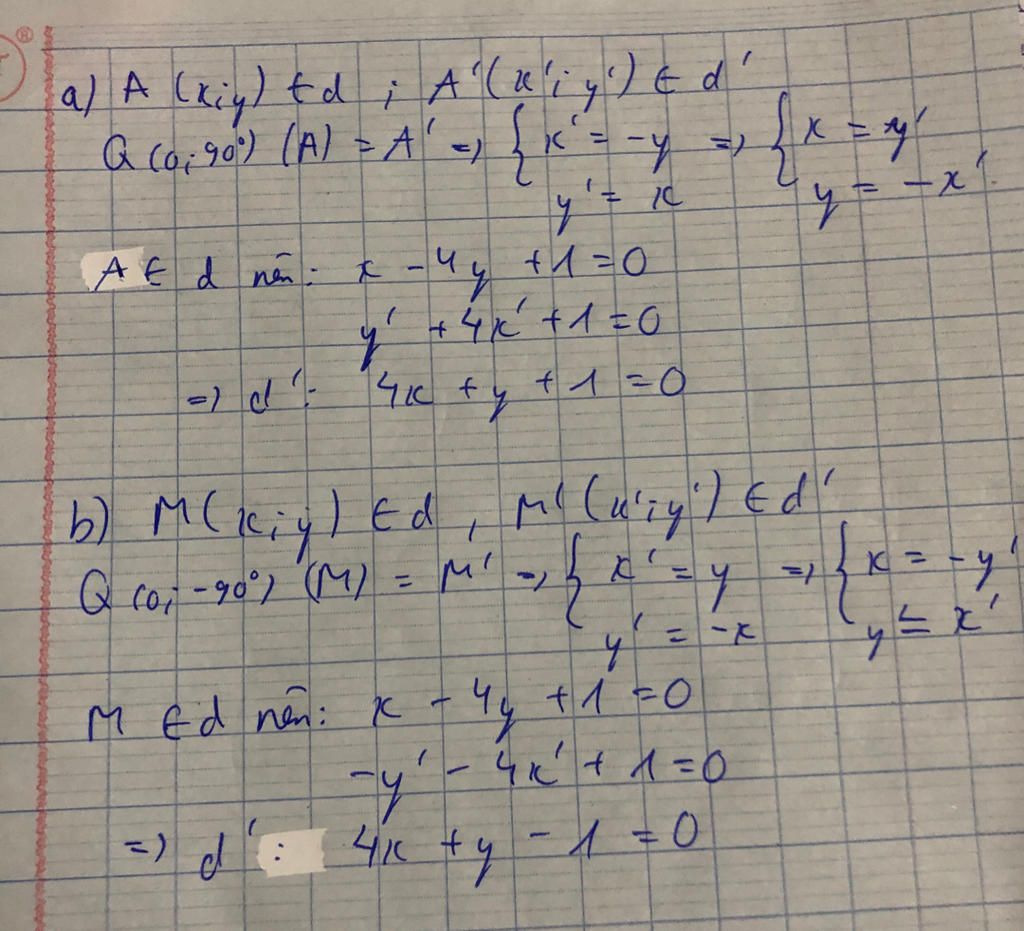 a) A (x;y) ∈ d ; A'(x';y') ∈ d'
Q (0;90°) (A) = A' => { x' = -y => { x = y'
y' = x y = -x'.
A ∈ d nên: x - 4y + 1 = 0
y' + 4x' + 1 = 0
=> d': 4x + y + 1 = 0
b) M(x;y) ∈ d , M'(x';y') ∈ d'
Q (0;-90°) (M) = M' => { x' = y => { x = -y'
y' = -x y = x'
M ∈ d nên: x - 4y + 1 = 0
-y' - 4x' + 1 = 0
=> d' : 4x + y - 1 = 0